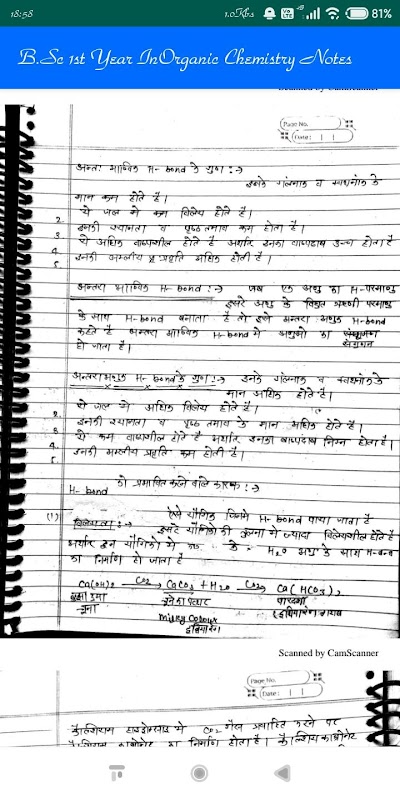 18:58 1.0K/s 81%
B.Sc 1st Year InOrganic Chemistry Notes
Scanned by CamScanner
Page No.
Date: | |
H-bond के गुण :→
इनके गलनांक व क्वथनांक के
मान कम होते हैं।
2. ये जल में कम विलेय होते हैं।
3. इनकी श्यानता व पृष्ठ तनाव कम होता है।
4. ये अधिक वाष्पशील होते हैं अर्थात इनका वाष्पदाब उच्च होता है
5. इनकी अम्लीय प्रवृति अधिक होती है।
H-bond :→ जब एक अणु का H-परमाणु
दूसरे अणु के विद्युत ऋणी परमाणु
के साथ H-bond बनाता है तो इसे अन्तरा अणुक H-bond
कहते हैं H-bond में अणुओं का संगुणन
हो जाता है।
अन्तराअणुक H-bond के गुण :→ इनके गलनांक व क्वथनांक के
मान अधिक होते हैं।
2. ये जल में अधिक विलेय होते हैं।
3. इनकी श्यानता व पृष्ठ तनाव के मान अधिक होते हैं।
4. ये कम वाष्पशील होते हैं अर्थात इनका वाष्पदाब निम्न होता है।
5. इनकी अम्लीय प्रवृति कम होती है।
H-bond को प्रभावित करने वाले कारक :→
(1) विलेयता :→ ऐसे यौगिक जिनमें H-bond पाया जाता है
यौगिकों की तुलना में ज्यादा विलेयशील होते हैं
अर्थात इन यौगिकों में के H₂O अणु के साथ H-bond
का निर्माण हो जाता है
Ca(OH)₂ CO₂ → CaCO₃ + H₂O CO₂ → Ca(HCO₃)₂
चूना
milky colour
Scanned by CamScanner
Page No.
Date: | |
कैल्शियम में CO₂ गैस प्रवाहित करने पर
का निर्माण होता है।